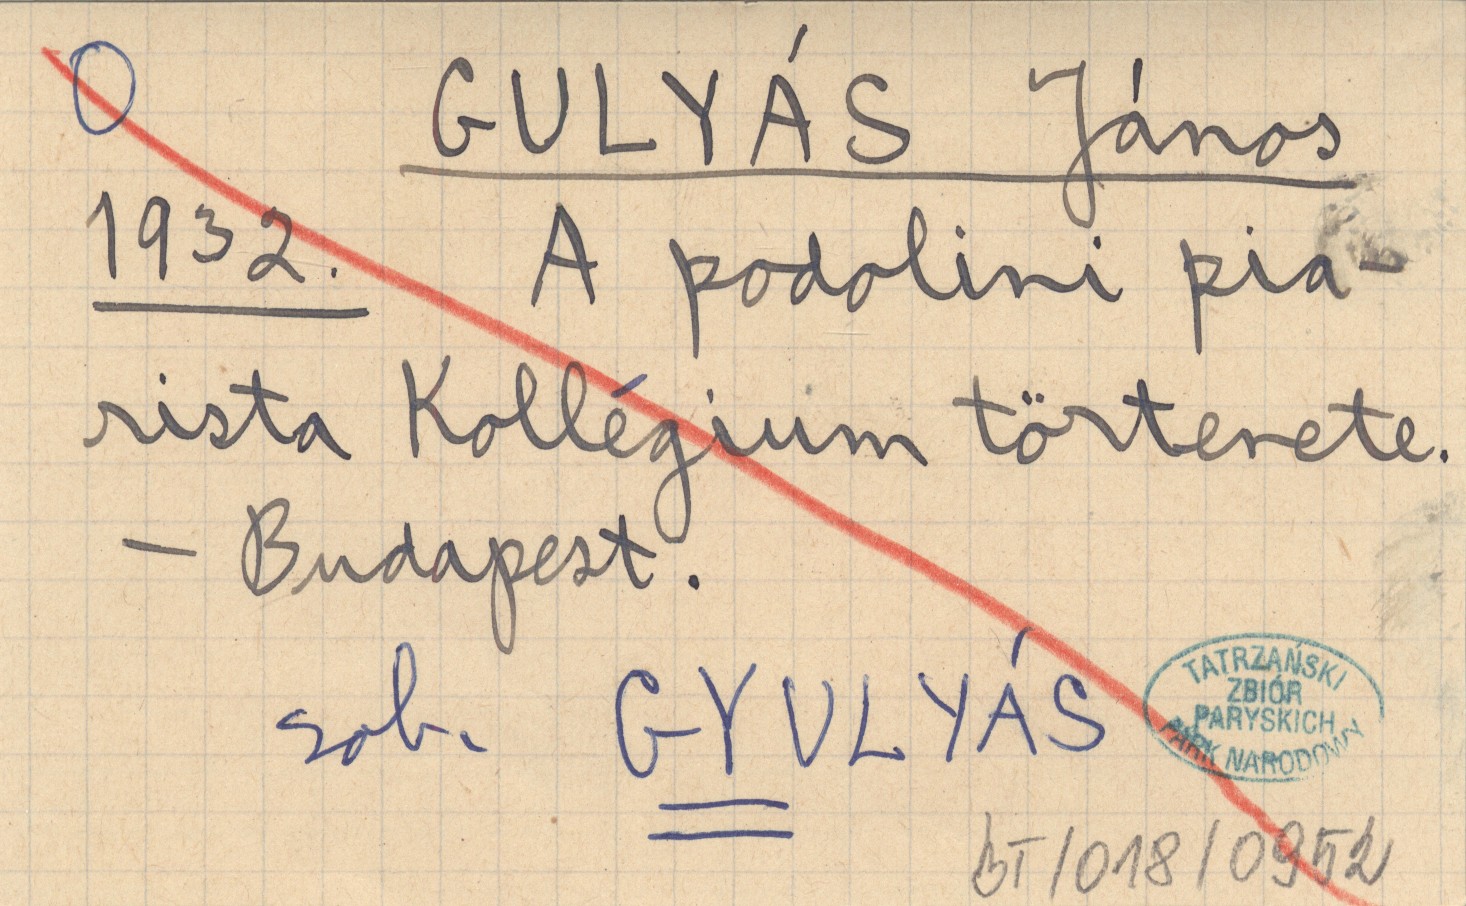 O GULYÁS János
1932. A podolini pia-
rista Kollégium története.
- Budapest.
zob. GYULYÁS
TATRZAŃSKI
ZBIÓR
PARYSKICH
PARK NARODOWY
BT/018/0952